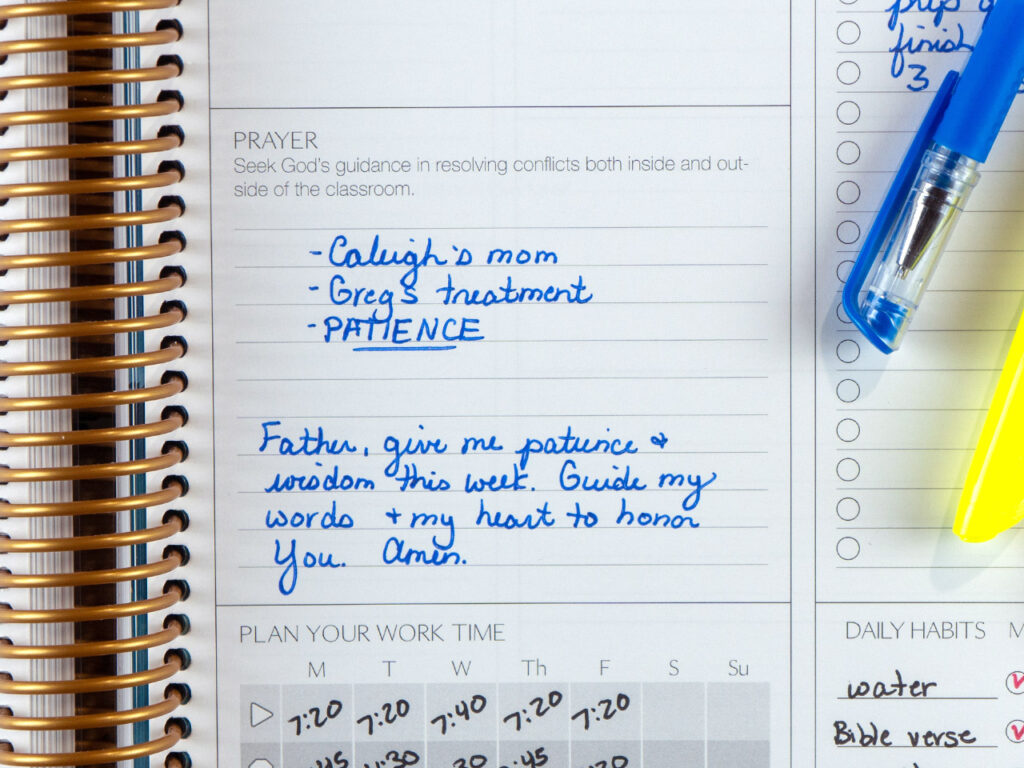 PRAYER
Seek God's guidance in resolving conflicts both inside and out-
side of the classroom.
- Caleigh's mom
- Greg's treatment
- PATIENCE
Father, give me patience &
wisdom this week. Guide my
words + my heart to honor
You. Amen.
PLAN YOUR WORK TIME
M T W Th F S Su
7:20 7:20 7:40 7:20 7:20
finish
3
DAILY HABITS M
water
Bible verse